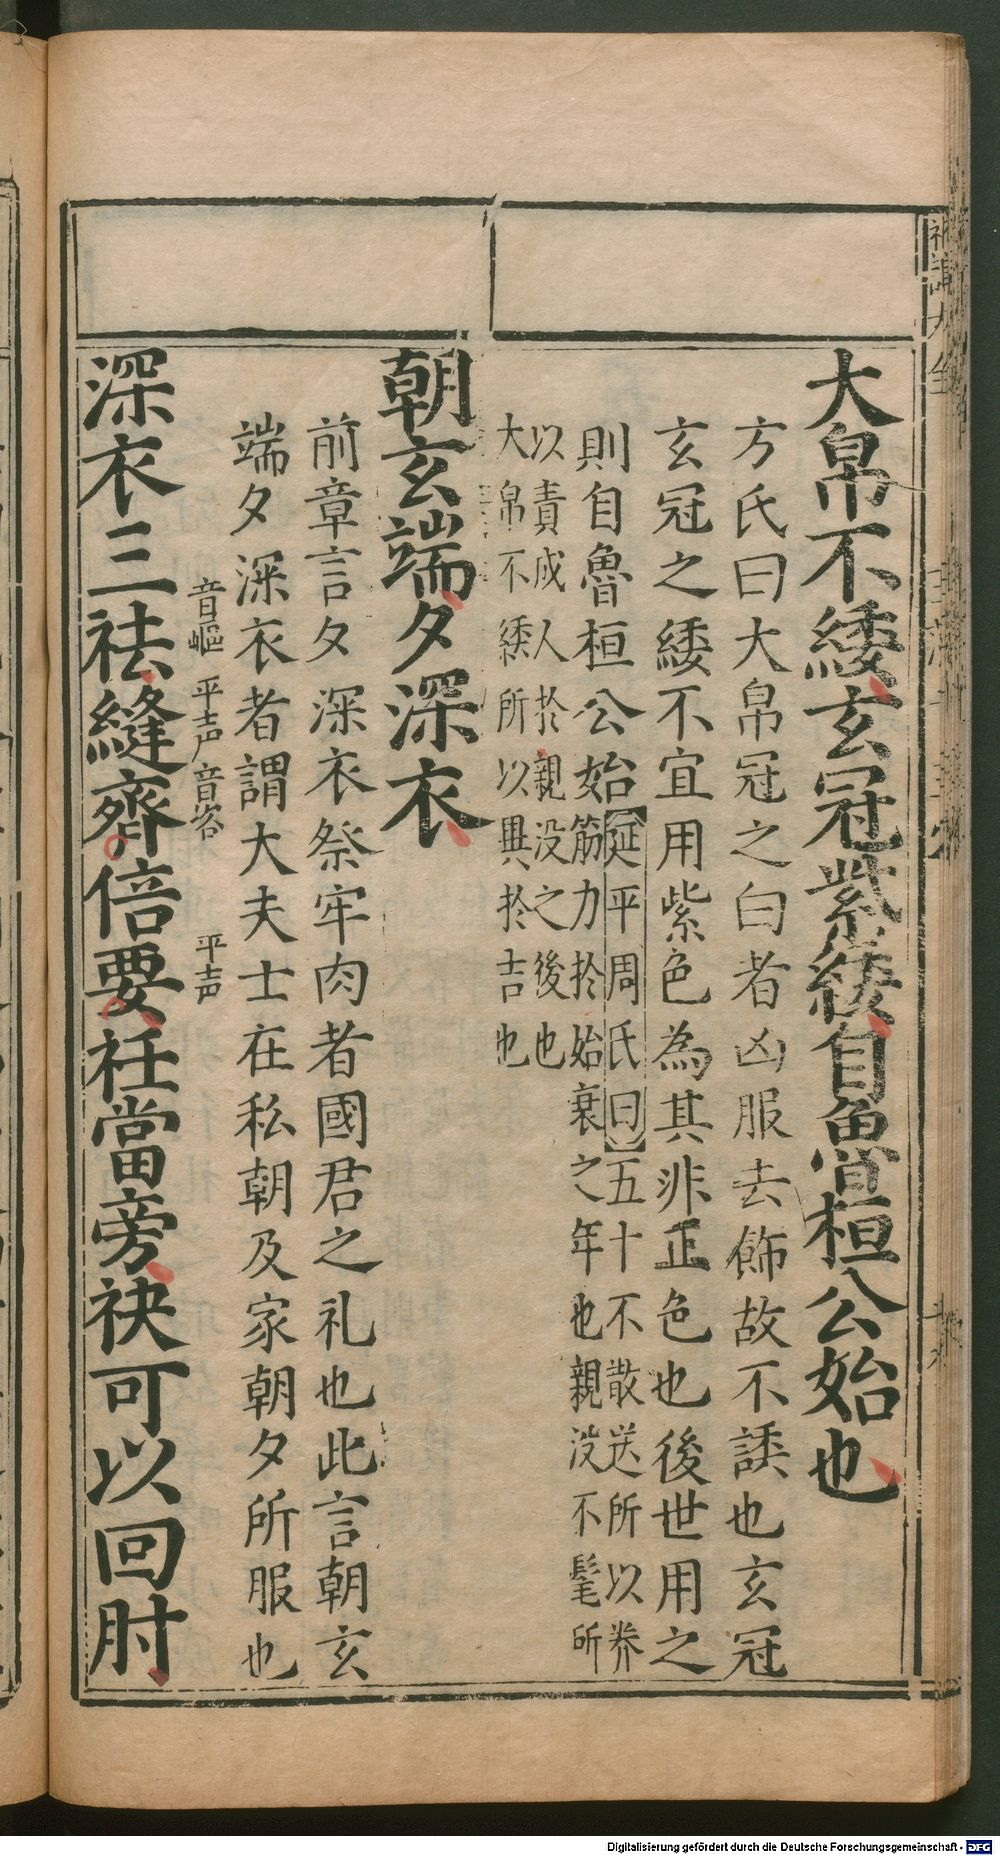 大帛不緌玄冠紫緌自魯桓公始也
方氏曰大帛冠之白者凶服去飾故不緌也玄冠
玄冠之緌不宜用紫色為其非正色也後世用之
則自魯桓公始
延平周氏曰五十不散送所以养
筋力扵始衰之年也親没不髦所
以責成人扵親没之後也
大帛不緌所以異扵吉也
朝玄端夕深衣
前章言夕深衣祭牢肉者國君之礼也此言朝玄
端夕深衣者謂大夫士在私朝及家朝夕所服也
音嶇 平声 音咨 平声
深衣三袪縫齊倍要衽當旁袂可以回肘
Digitalisierung gefördert durch die Deutsche Forschungsgemeinschaft - DFG